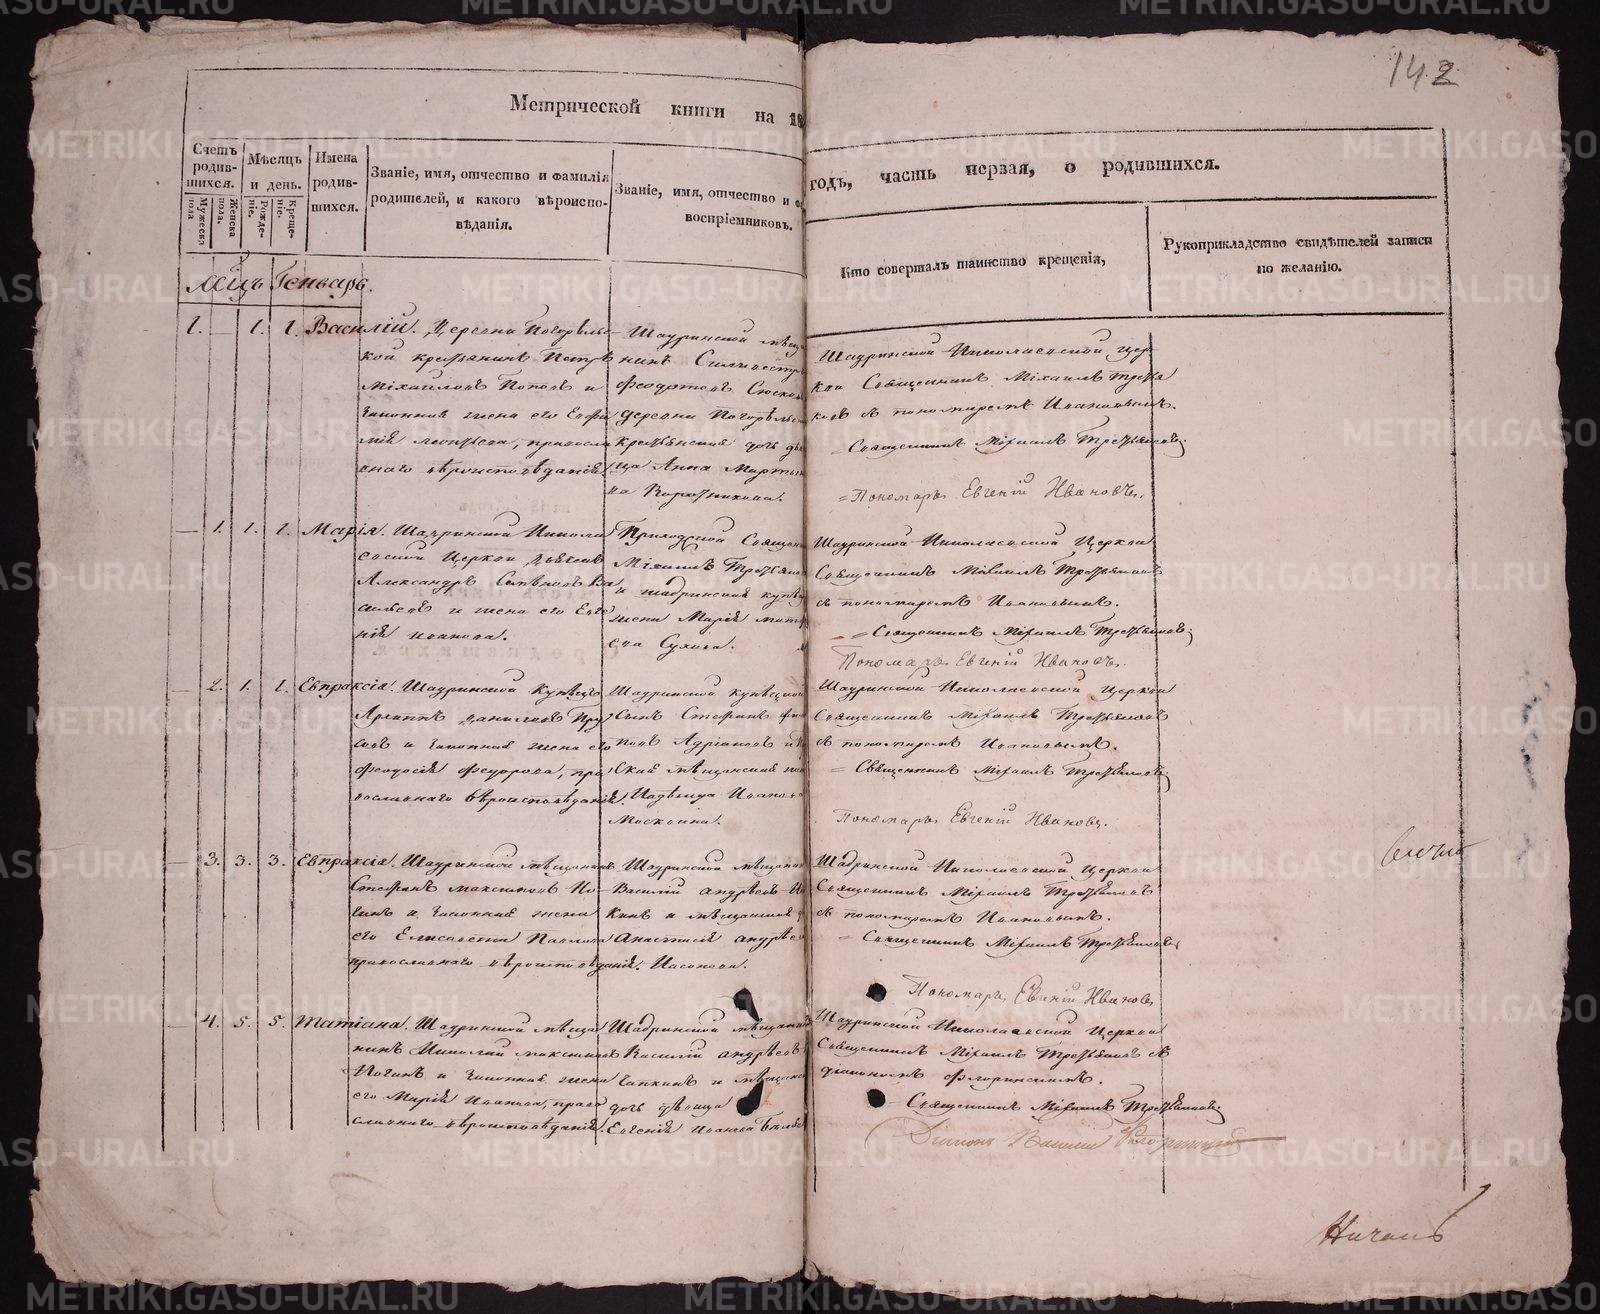 142
Метрической книги на 18
годъ, часть первая, о родившихся.
Счетъ родившихся.
Мужеска пола
Женска пола.
Мѣсяцъ и день.
Рождение.
Крещение.
Имена родившихся.
Званіе, имя, отчество и фамилія родителей, и какого вѣроисповѣданія.
Званіе, имя, отчество и
воспріемниковъ.
Кто совершалъ таинство крещенія,
Рукоприкладство свидѣтелей записи по желанію.
Мцъ Генварь.
1. — 1. 1. Василій. Деревни Погорѣльс-
кой крестьянинъ Петръ
Михайловъ Поповъ и
законная жена его Евфи
мія Леонтьева, правосла
внаго вѣроисповѣданія.
Шадринской мѣща
нинъ Сильвестръ
Феодотовъ
деревни Погорѣльс
крестьянская дочь дѣви
ца Анна Марты
на Коротникова.
Шадринской Николаевской цер
кви Священникъ Михаилъ Третья
ковъ съ пономаремъ Ивановымъ.
Священникъ Михаилъ Третьяковъ.
Пономарь Евгеній Ивановъ.
— 1. 1. 1. Марія. Шадринской Никола
евской Церкви дьячекъ
Александръ Ва
сильевъ и жена его Евге
нія Иванова.
Приходской Священ
Михаилъ Третьяков
и шадринскаго купц
жена Марія Мат
ева Сухова.
Шадринской Николаевской Церкви
Священникъ Михаилъ Третьяковъ
съ пономаремъ Ивановымъ.
Священникъ Михаилъ Третьяковъ.
Пономарь Евгеній Ивановъ.
— 2. 1. 1. Евпраксія. Шадринской Купецъ
Архиппъ Даниловъ
и законная жена его
Феодосія Федорова, пра
вославнаго вѣроисповѣданія.
Шадринской купецкой
сынъ Стефанъ
Адріановъ
мѣщанская
Надежда Иванова
Москвина.
Шадринской Николаевской Церкви
Священникъ Михаилъ Третьяковъ
съ пономаремъ Ивановымъ.
Священникъ Михаилъ Третьяковъ.
Пономарь Евгеній Ивановъ.
— 3. 3. 3. Евпраксія. Шадринской мѣщанинъ
Стефанъ Максимовъ Но-
гинъ и законная жена
его Елисавета Павлова
православнаго вѣроисповѣданія.
Шадринской мѣщанин
Василій Андреевъ
и мѣщанская
Анастасія Андрѣева
Насонова.
Шадринской Николаевской Церкви
Священникъ Михаилъ Третьяковъ
съ пономаремъ Ивановымъ.
Священникъ Михаилъ Третьяковъ
Пономарь Евгеній Ивановъ
— 4. 5. 5. Татіана. Шадринской мѣща
нинъ Николай Максимовъ
Ногинъ и законная жена
его Марія Иванова, право
славнаго вѣроисповѣданія.
Шадринской мѣщанин
Василій Андреевъ
Чапкинъ и мѣщанск
дочь дѣвица
Евгенія Иванова
Шадринской Николаевской Церкви
Священникъ Михаилъ Третьяковъ съ
діакономъ Флоринскимъ.
Священникъ Михаилъ Третьяковъ.
Діаконъ Василій
METRIKI.GASO-URAL.RU